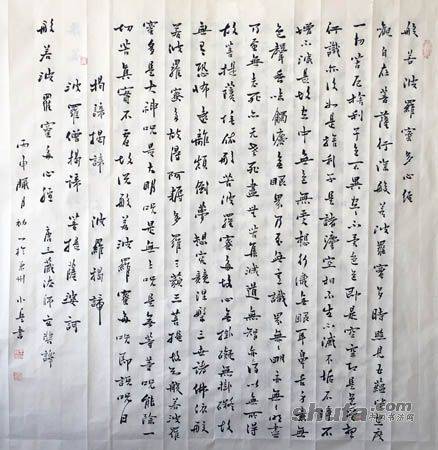 般若波羅蜜多心經
觀自在菩薩行深般若波羅蜜多時照見五蘊皆空度
一切苦厄舍利子色不異空空不異色色即是空空即是色受想
行識亦復如是舍利子是諸法空相不生不滅不垢不淨不
增不減是故空中無色無受想行識無眼耳鼻舌身意無
色聲香味觸法無眼界乃至無意識界無無明亦無無明盡
乃至無老死亦無老死盡無苦集滅道無智亦無得以無所得
故菩提薩埵依般若波羅蜜多故心無掛礙無掛礙故
無有恐怖遠離顛倒夢想究竟涅槃三世諸佛依般
若波羅蜜多故得阿耨多羅三藐三菩提故知般若波羅
蜜多是大神咒是大明咒是無上咒是無等等咒能除一
切苦真實不虛故說般若波羅蜜多咒即說咒曰
揭諦揭諦 波羅揭諦
波羅僧揭諦 菩提薩婆訶
般若波羅蜜多心經 唐三藏法師玄奘譯
丙申臘月初一於 州小 書
shufa.com